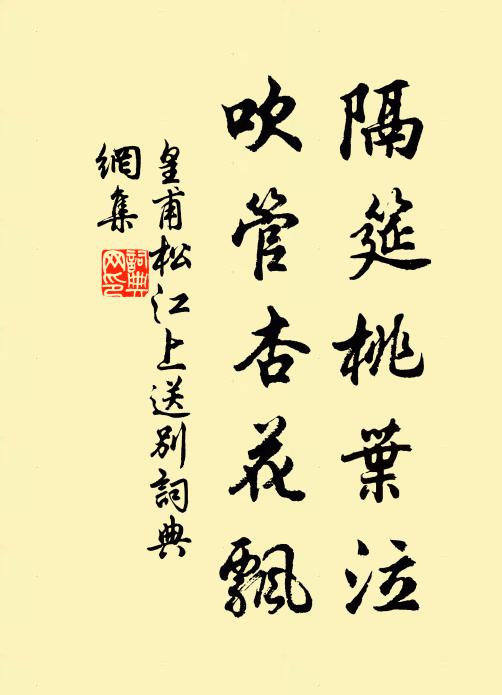 隔筵桃葉泣
吹管杏花飄
皇甫松江上送別詞典
網集
詞典網印